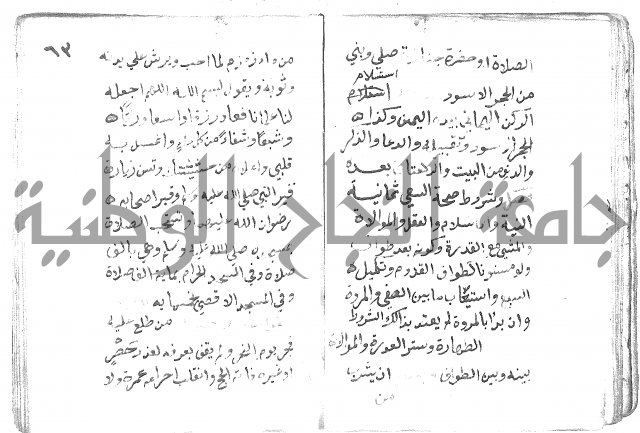 الصلاة او حضرة جنازة صلي وبني
استلام
من الحجر الاسود استلام
الركن اليماني بيده اليمن وكذا
الاسود وتقبيله والدعا والذكر
من البيت والركعتان بعده
وشروط صحة السعي ثمانية
النية والاسلام والعقل والموالاة
والمشي مع القدرة وكونه بعد طواف
ولو مسنونا كطواف القدوم وتكميل
السبع واستيعاب ما بين الصفى والمروة
وان بدأ بالمروة لم يعتد بذلك الشوط
الطهارة وستر العورة والموالاة
بينه وبين الطواف ان يشرب
من
٦٣
من ماء زمزم لما احب ويرش على بدنه
وثوبه ويقول بسم الله اللهم اجعله
لنا علما نافعا ورزقا واسعا وريا
وشبعا وشفاء من كل داء واغسل به
قلبي واملاه من وتسن زيارة
قبر النبي صلى الله عليه وسلم وقبر اصحابه
رضوان الله عليهم وتستحب الصلاة
صلى الله عليه وسلم وهي بالف
صلاة وفي المسجد الحرام بماية الف صلاة
وفي المسجد الاقصى بخمسماية
من طلع عليه
فجر يوم النحر ولم يقف بعرفة لعذر حصر
او غيره فاته الحج وانقلب احرامه عمرة ولا
جامعة النجاح الوطنية